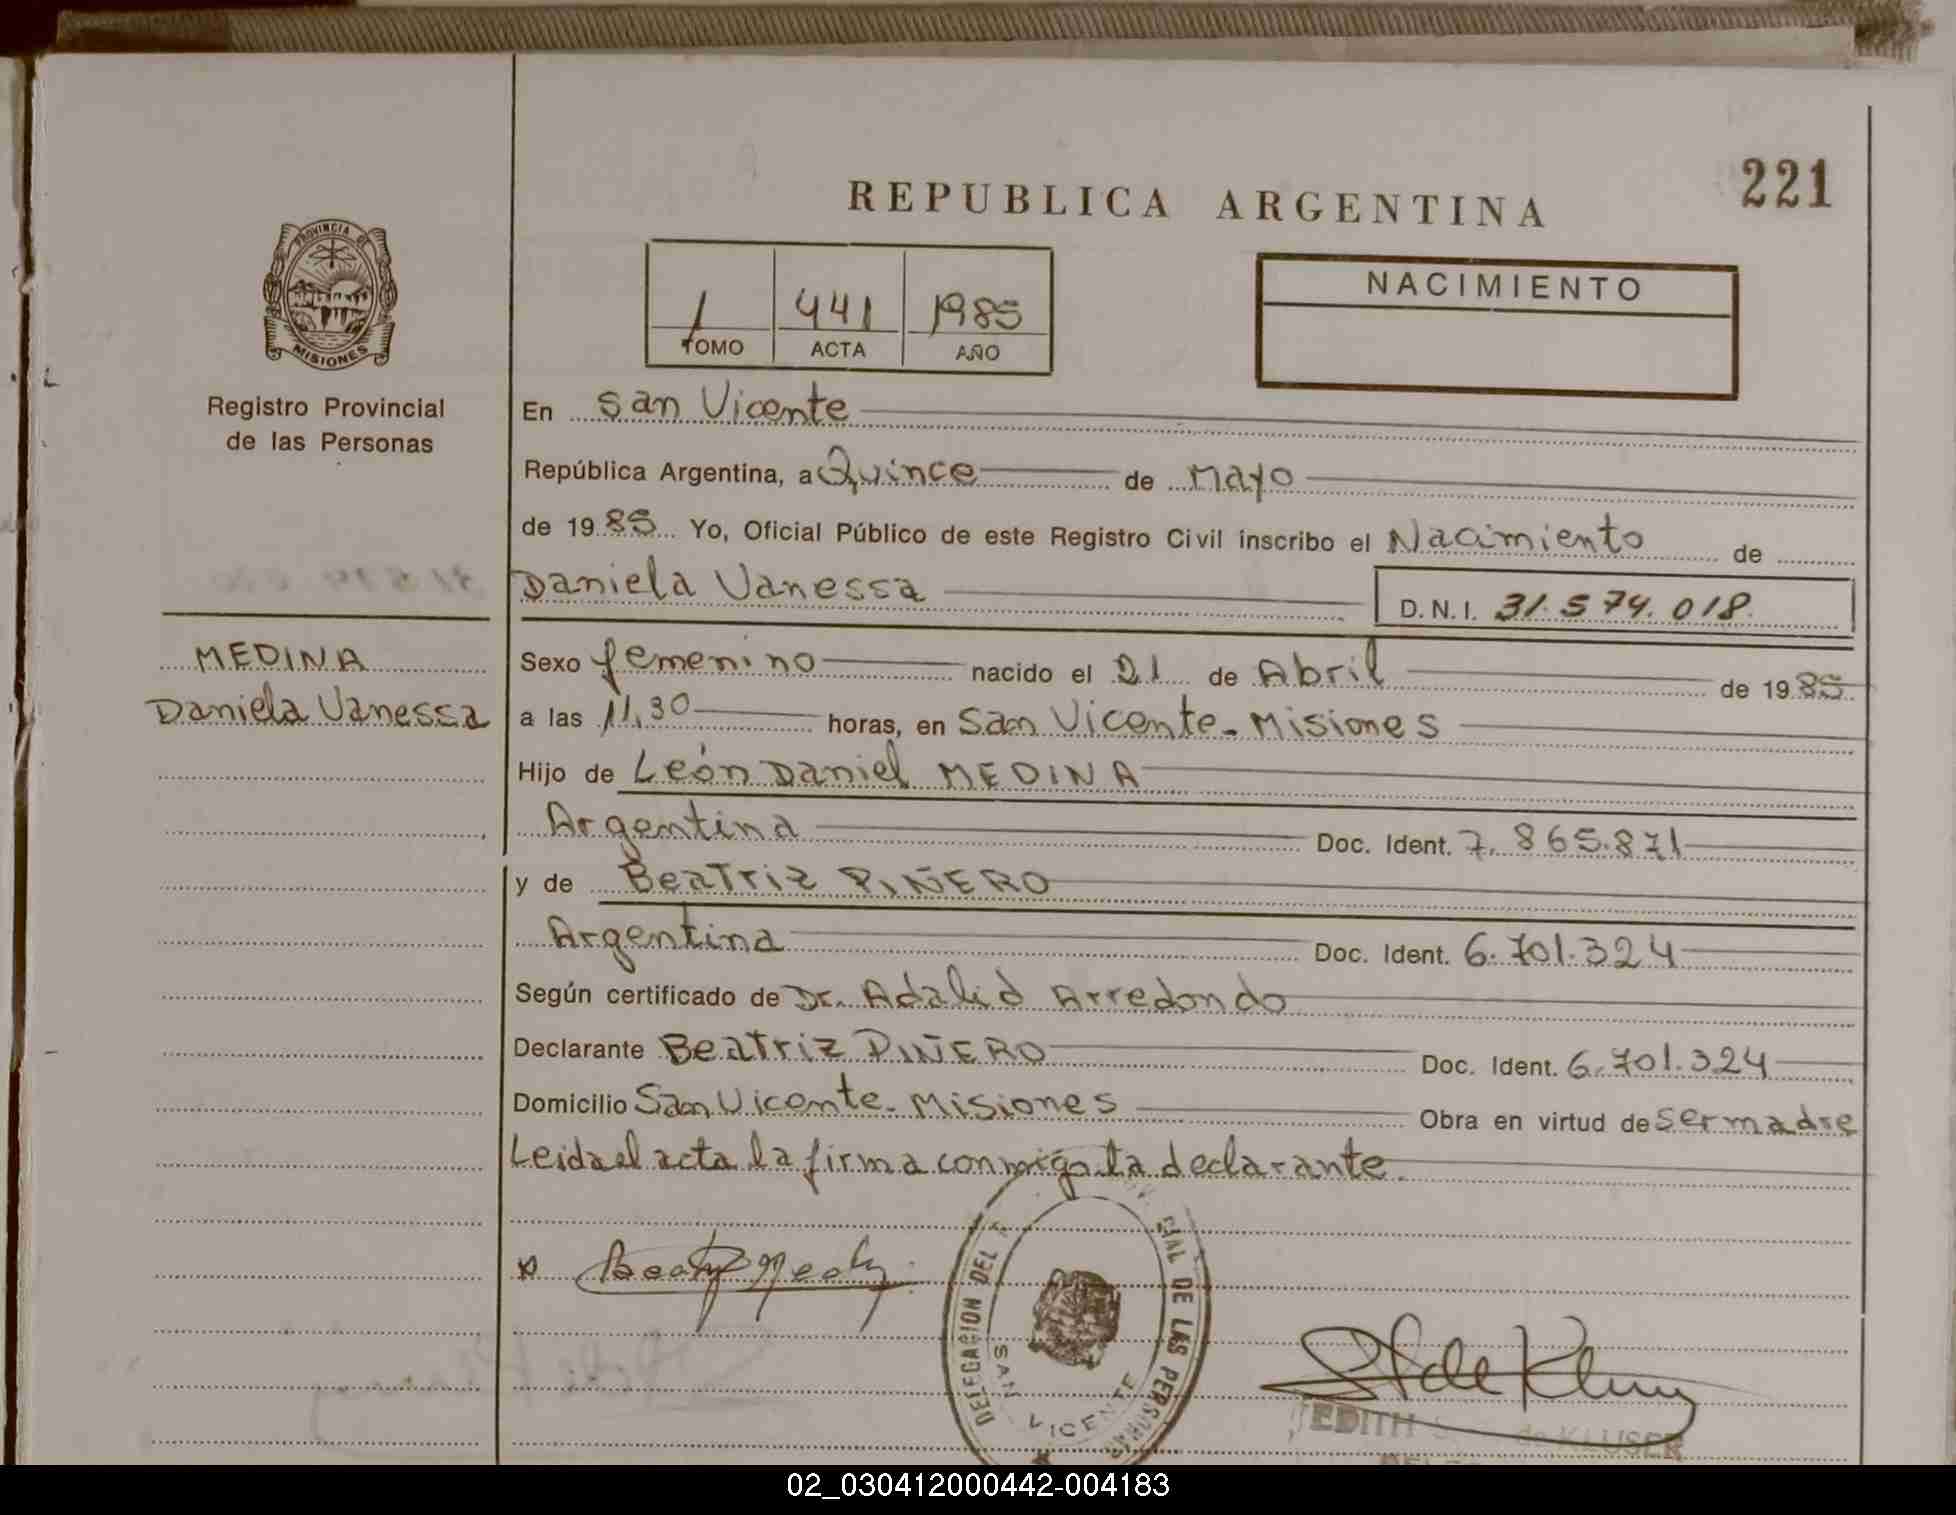 221
REPUBLICA ARGENTINA
PROVINCIA DE
MISIONES
NACIMIENTO
1 441 1985
TOMO ACTA AÑO
Registro Provincial
de las Personas
En San Vicente
República Argentina, a Quince de Mayo
de 1985 Yo, Oficial Público de este Registro Civil inscribo el Nacimiento de
Daniela Vanessa D.N.I. 31.574.018
MEDINA
Daniela Vanessa
Sexo femenino nacido el 21 de Abril de 1985
a las 11,30 horas, en San Vicente - Misiones
Hijo de León Daniel MEDINA
Argentina Doc. Ident. 7.865.871
y de Beatriz PIÑERO
Argentina Doc. Ident. 6.701.324
Según certificado de Dr. Adalid Arredondo
Declarante Beatriz PIÑERO Doc. Ident. 6.701.324
Domicilio San Vicente - Misiones Obra en virtud de ser madre
Leida el acta la firma conmigo la declarante.
DELEGACION DEL DE LAS PERSONAS
SAN VICENTE
EDITH de KLUSER
02_030412000442-004183